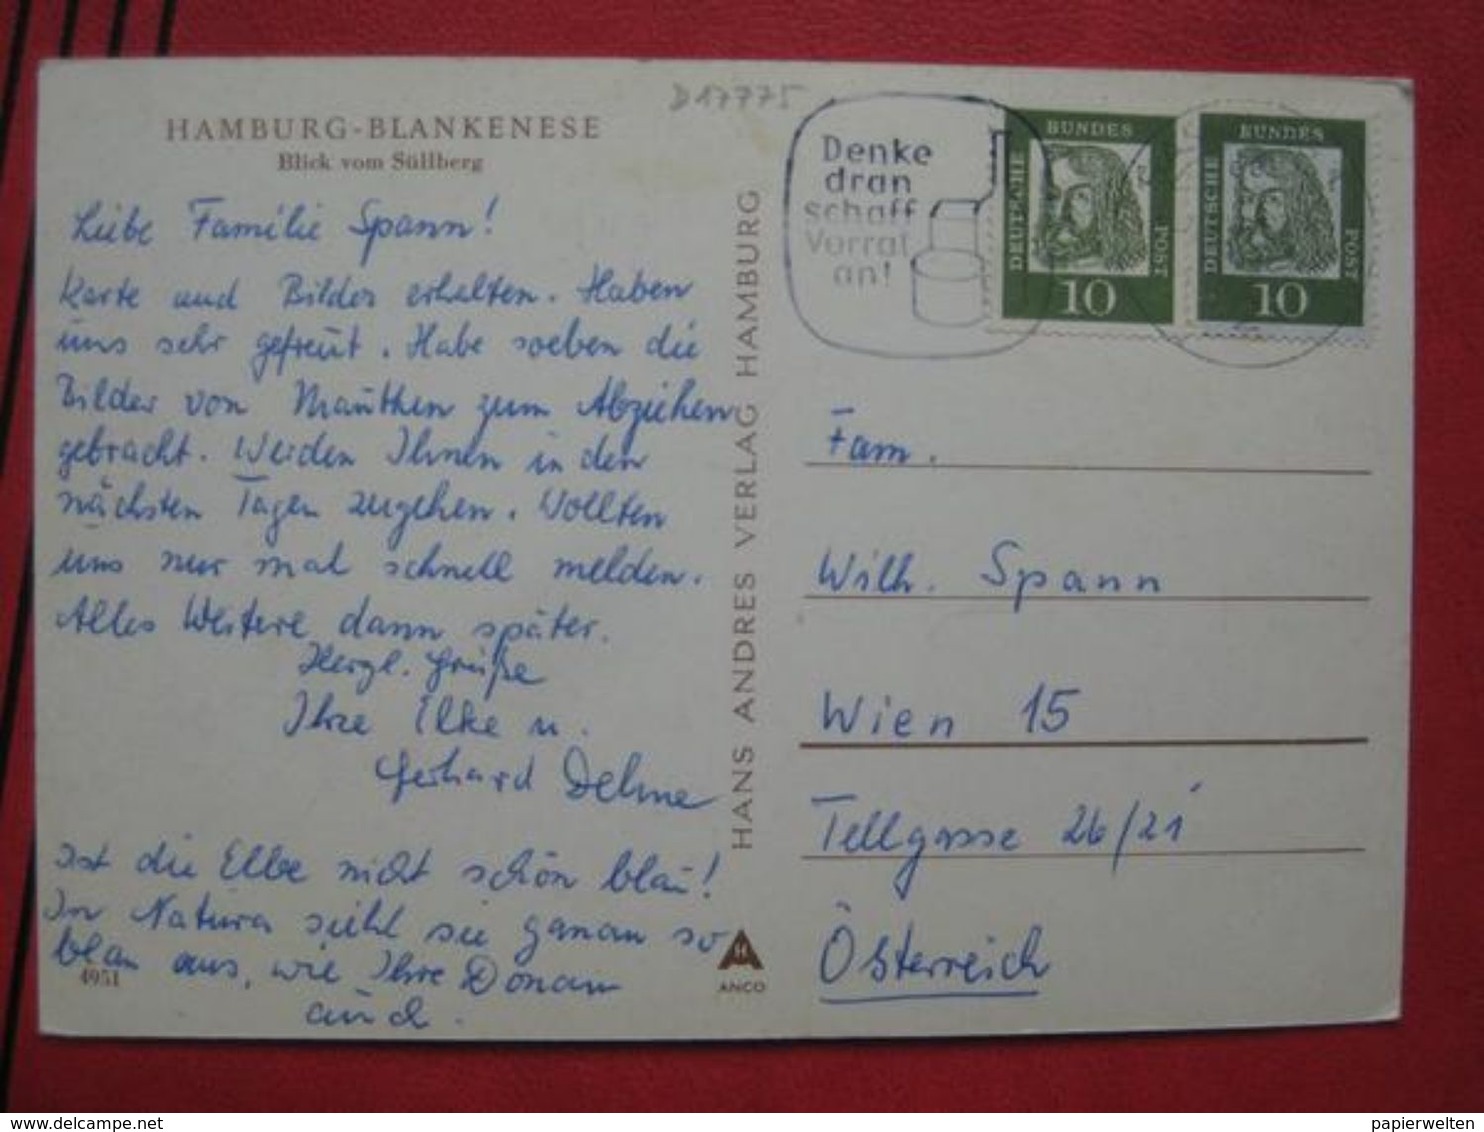 D17775
HAMBURG-BLANKENESE
Blick vom Süllberg
Liebe Familie Spann!
Karte und Bilder erhalten. Haben
uns sehr gefreut. Habe soeben die
Bilder von Mauthen zum Abziehen
gebracht. Werden Ihnen in den
nächsten Tagen zugehen. Wollten
uns nur mal schnell melden.
Alles Weitere dann später.
Herzl. Grüße
Ihre Elke u.
Gerhard Delme
Ist die Elbe nicht schön blau!
In Natura sieht sie genau so
blau aus, wie Ihre Donau
auch.
4951
HANS ANDRES VERLAG HAMBURG
ANCO
Denke
dran
schaff
Vorrat
an!
DEUTSCHE BUNDES POST
10
DEUTSCHE BUNDES POST
10
Fam.
Wilh. Spann
Wien 15
Tellgasse 26/21
Österreich
www.delcampe.net
papierwelten